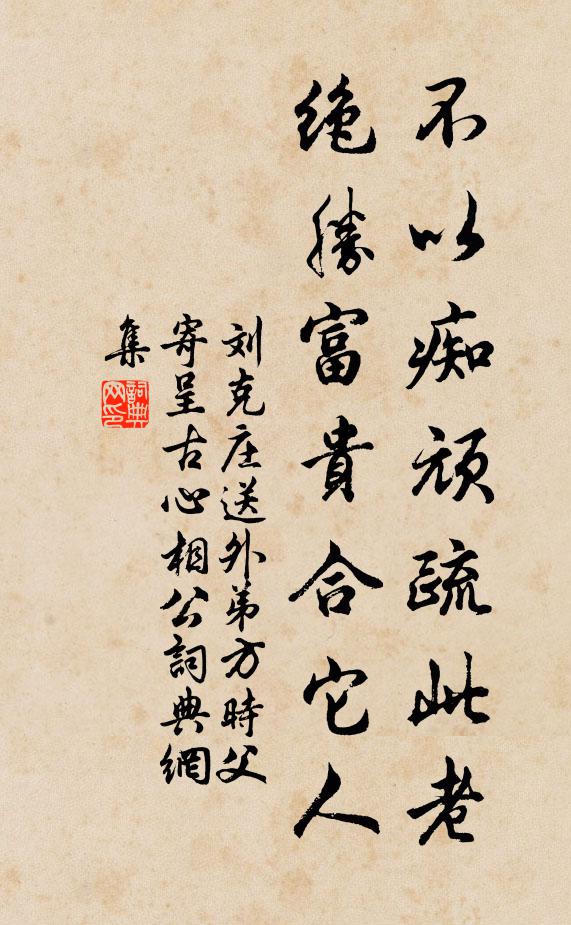 不以痴頑疏此老
絶勝富貴合它人
刘克庄送外弟方時父
寄呈古心相公詞典網
集
詞典網印